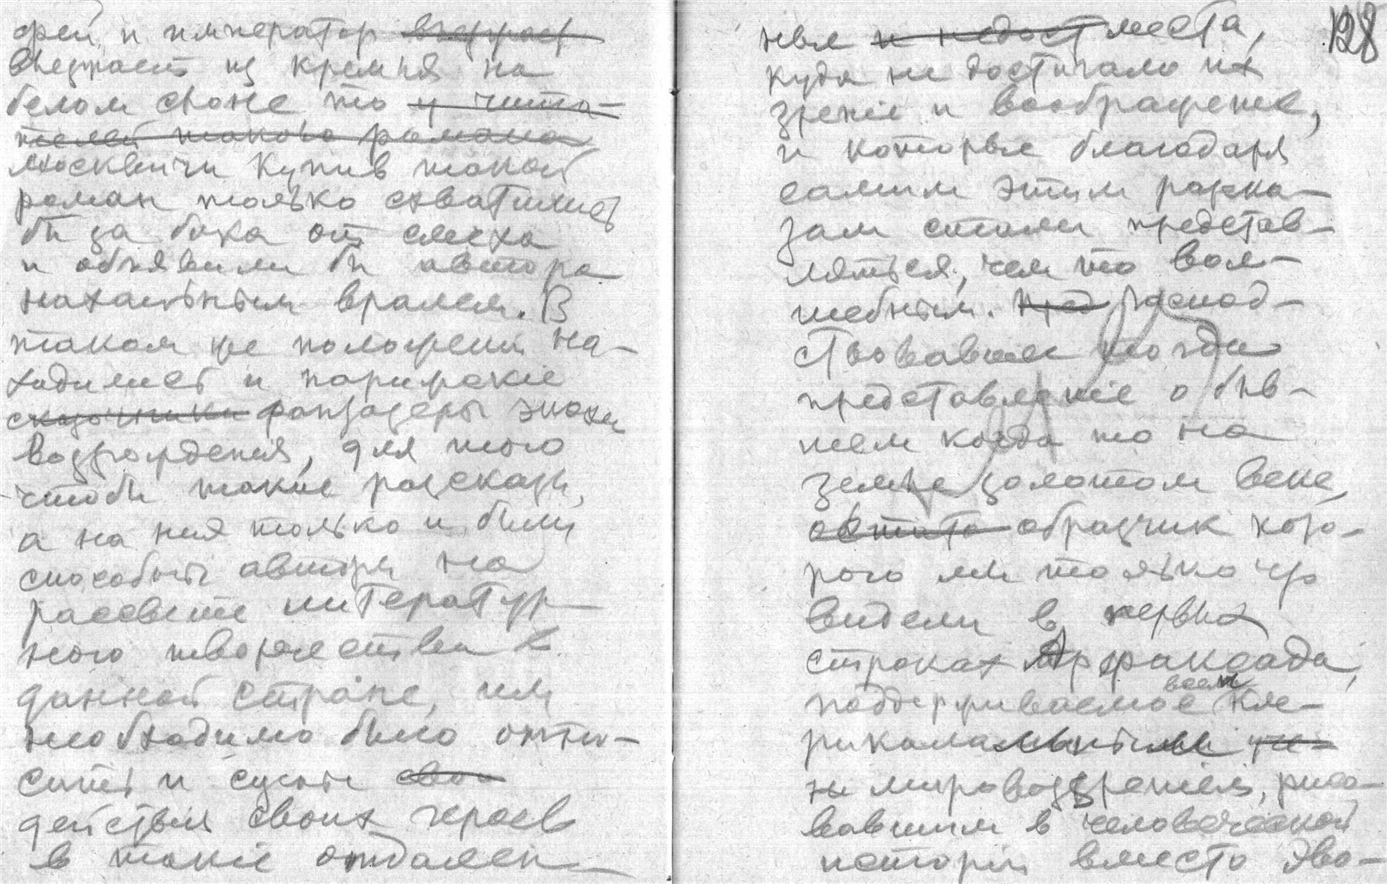 фей, и император
въезжает из кремля на
белом слоне, то у чита-
телей такого романа
москвичи купив такой
роман только схватились
бы за бока от смеха
и объявили бы автора
нахальным вралем. В
таком же положении на-
ходились и парижские
сказочники фантазеры эпохи
возрождения, для того
чтобы такие рассказы,
а на них только и были
способны авторы на
рассвете литератур-
ного творчества в
данной стране, им
необходимо было отно-
сить и сцены сво
действия своих героев
в такие отдален-
128
ные и недост места,
куда не достигало их
зрение и воображение,
и которые благодаря
самим этим расска-
зам стали представ-
ляться, чем то вол-
шебным. Пред Господ-
ствовавшее тогда
представление о быв-
шем когда то на
земле золотом веке,
образчик кото-
рого мы только что
видели в первых
строках Арфаксада,
поддерживаемое всем кле-
рикальным
мировоззрением, рисо-
вавшим в человеческой
истории вместо эво-